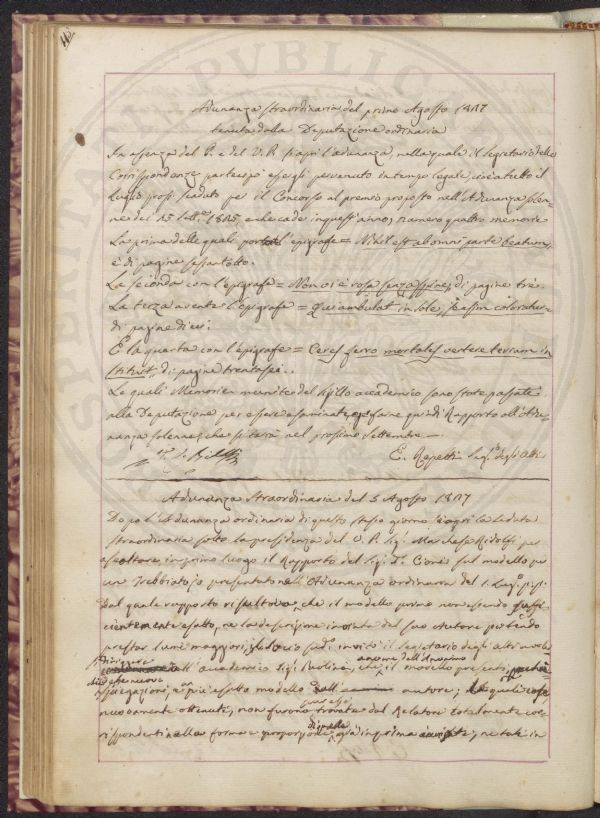 Adunanza straordinaria del primo Agosto 1817
tenuta dalla Deputazione ordinaria
In assenza del P. e del V. P. s'aprì l'adunanza, nella quale il Segretario delle
Corrispondenze partecipò essergli pervenuto in tempo legale, cioè a tutto il
Luglio pross. scaduto per il Concorso al premio proposto nell'Adunanza solen-
ne dei 15 Sett. 1815, e che cade in quest'anno, numero quattro memorie
La prima delle quali porta l'epigrafe = Nihil est ab omni parte beatum,
è di pagine sessantotto.
La seconda con l'epigrafe = Non vi è rosa senza spine, di pagine tre.
La terza avente l'epigrafe = Qui ambulat in sole, passim coloratur
di pagine dieci.
E la quarta con l'epigrafe = Ceres ferro mortales vertere terram in
stituit, di pagine trentasei.
Le quali Memorie munite del sigillo accademico sono state passate
alla Deputazione per essere esaminate, e farne quindi Rapporto all'Adu-
nanza solenne che si terrà nel prossimo Settembre
E. Repetti Seg. degli Atti
Adunanza Straordinaria del 3 Agosto 1817
Dopo l'Adunanza ordinaria di questo stesso giorno s'aprì la seduta
straordinaria sotto la presidenza del V. P. Sig. Marchese Ridolfi per
ascoltare in primo luogo il Rapporto del Sig. D. Cioni sul modello per
un Trebbiatojo presentato nell'Adunanza ordinaria del
Dal quale rapporto risultava, che il modello primo non essendo suffi-
cientemente esatto, ne la descrizione inviata dal suo Autore potendo
prestar lumi maggiori, invitò il Segretario degli atti a voler
dirigere
all'accademico Sig. autore dell'Anonimo che il modello presentò,
chiedesse nuove
spiegazioni, e un più esatto modello dall' autore; le quali cose
nuovamente ottenute, non furono trovate dal Relatore totalmente cor-
rispondenti nella forma e proporzione di quelle già in prima avute, ne tali in